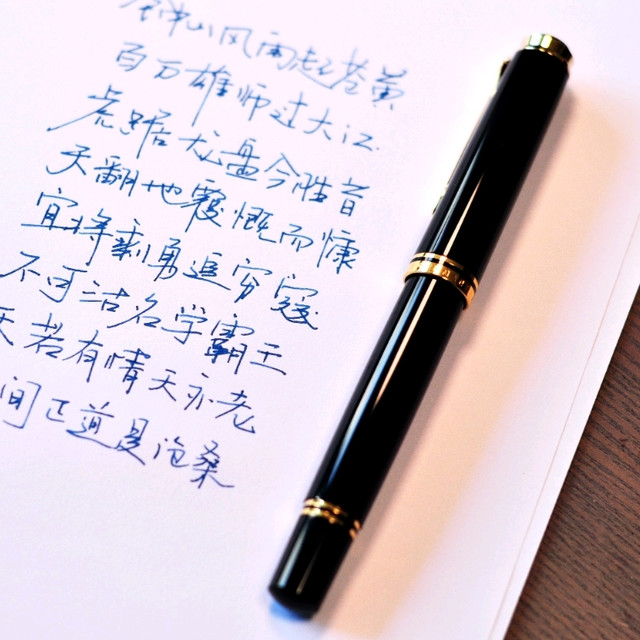 钟山风雨起苍黄
百万雄师过大江
虎踞龙盘今胜昔
天翻地覆慨而慷
宜将剩勇追穷寇
不可沽名学霸王
天若有情天亦老
间正道是沧桑